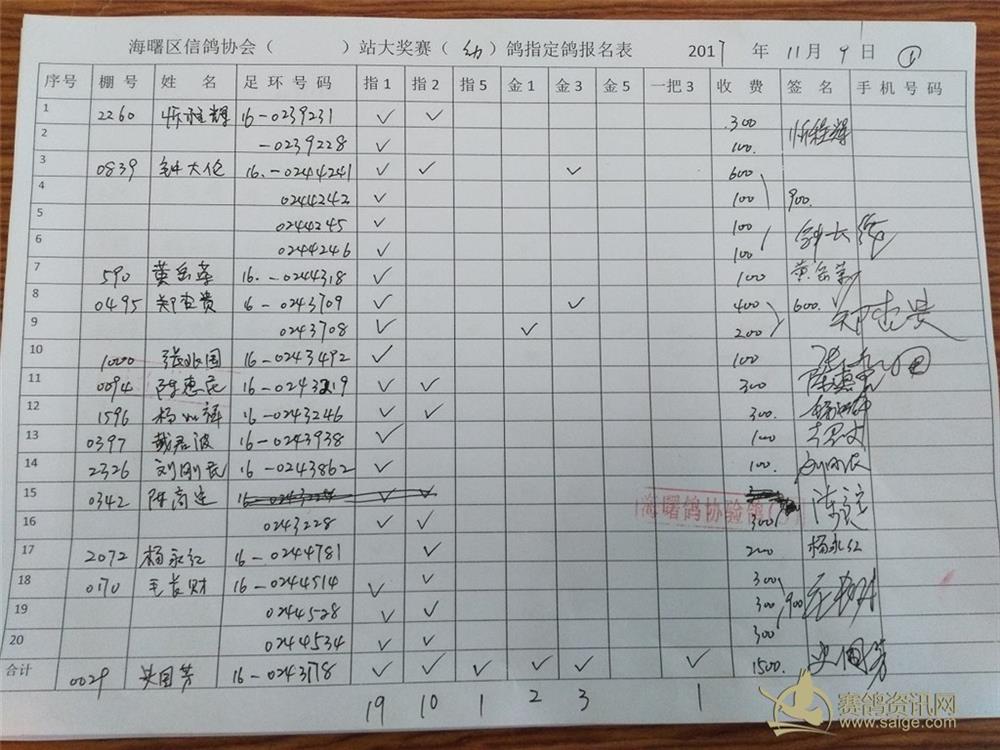 海曙区信鸽协会（ ）站大奖赛（幼）鸽指定鸽报名表 2017 年 11月 9 日 ①
序号 棚号 姓名 足环号码 指1 指2 指5 金1 金3 金5 一把3 收费 签名 手机号码
1 2260 16-0239231 ✓ ✓ 300
2 -0239228 ✓ 100.
3 0839 钟大伦 16.-0244241 ✓ ✓ ✓ 600
4 0244242 ✓ 100 900.
5 0244245 ✓ 100
6 0244246 ✓ 100
7 590 16.-0244318 ✓ 100
8 0495 16-0243709 ✓ ✓ 400 600.
9 0243708 ✓ ✓ 200
10 1000 张兆国 16-0243492 ✓ 100
11 0094 陈惠民 16-0243219 ✓ ✓ 300
12 1596 16-0243246 ✓ ✓ 300.
13 0397 戴君波 16-0243938 ✓ 100
14 2326 刘刚民 16-0243862 ✓ 100. 刘刚民
15 0342
海曙鸽协验鸽
16 0243228 ✓ ✓ 300
17 2072 杨永红 16-0244781 ✓ 200 杨永红
18 0170 毛长财 16-0244514 ✓ ✓ 300
19 0244528 ✓ ✓ 300 900
20 0244534 ✓ ✓ 300
合计 0029 史国芳 16-0243178 ✓ ✓ ✓ ✓ ✓ ✓ 1500. 史国芳
19 10 1 2 3 1
赛鸽资讯网
www.saige.com